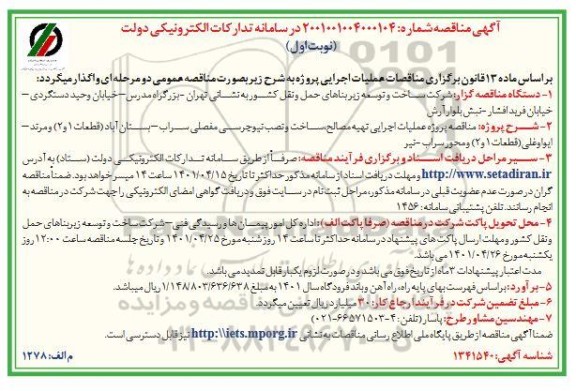 آگهی مناقصه شماره: ۲۰۰۱۰۰۱۰۰۴۰۰۰۱۰۴ در سامانه تدارکات الکترونیکی دولت
(نوبت اول)
بر اساس ماده ۱۳ قانون برگزاری مناقصات عملیات اجرایی پروژه به شرح زیر بصورت مناقصه عمومی دو مرحله ای واگذار میگردد:
۱- دستگاه مناقصه گزار: شرکت ساخت و توسعه زیربناهای حمل ونقل کشور به نشانی تهران -بزرگراه مدرس-خیابان وحید دستگردی-
خیابان فرید افشار -نبش بلوار آرش
۲-شرح پروژه: مناقصه پروژه عملیات اجرایی تهیه مصالح، ساخت ونصب نیوجرسی مفصلی سراب -بستان آباد (قطعات ۱و۲) و مرند-
ایواوغلی (قطعات ۱و۲) و محور سراب -نیر
۳- سیر مراحل دریافت اسناد و برگزاری فرآیند مناقصه: صرفاً از طریق سامانه تدارکات الکترونیکی دولت (ستاد) به آدرس
http://www.setadiran.ir و مهلت دریافت اسناد از سامانه مذکور حداکثر تا تاریخ ۱۴۰۱/۰۴/۱۵ تا ساعت ۱۴ میسر خواهد بود. ضمنا مناقصه
گران در صورت عدم عضویت قبلی در سامانه مذکور، مراحل ثبت نام در سایت فوق و دریافت گواهی امضای الکترونیکی را جهت شرکت در مناقصه به
انجام رسانند. تلفن پشتیبانی سامانه: ۱۴۵۶
۴- محل تحویل پاکت شرکت در مناقصه (صرفا پاکت الف): اداره کل امور پیمان ها و رسیدگی فنی-شرکت ساخت و توسعه زیربناهای حمل
ونقل کشور و مهلت ارسال پاکت های پیشنهاد در سامانه حداکثر تا ساعت ۱۴ روز شنبه مورخ ۱۴۰۱/۰۴/۲۵ و تاریخ جلسه مناقصه ساعت ۱۲:۰۰ روز
یکشنبه مورخ ۱۴۰۱/۰۴/۲۶ می باشد.
مدت اعتبار پیشنهادات ۳ ماه از تاریخ فوق می باشد و در صورت لزوم یکبار قابل تمدید می باشد.
۵- برآورد: براساس فهرست بهای پایه راه، راه آهن و باند فرودگاه سال ۱۴۰۱ به مبلغ ۱/۱۴۸/۸۰۳/۶۳۶/۶۳۸ ریال میباشد.
۶- مبلغ تضمین شرکت در فرآیند ارجاع کار: ۳۰ میلیارد ریال تعیین میگردد.
۷- مهندسین مشاور طرح: پاسار (تلفن: ۴-۶۶۵۷۱۵۰۳-۰۲۱)
ضمنا آگهی مناقصه از طریق پایگاه ملی اطلاع رسانی مناقصات به نشانی http://iets.mporg.ir نیز قابل دسترسی است.
شناسه آگهی: ۱۳۴۱۵۴۰
م الف: ۱۲۷۸